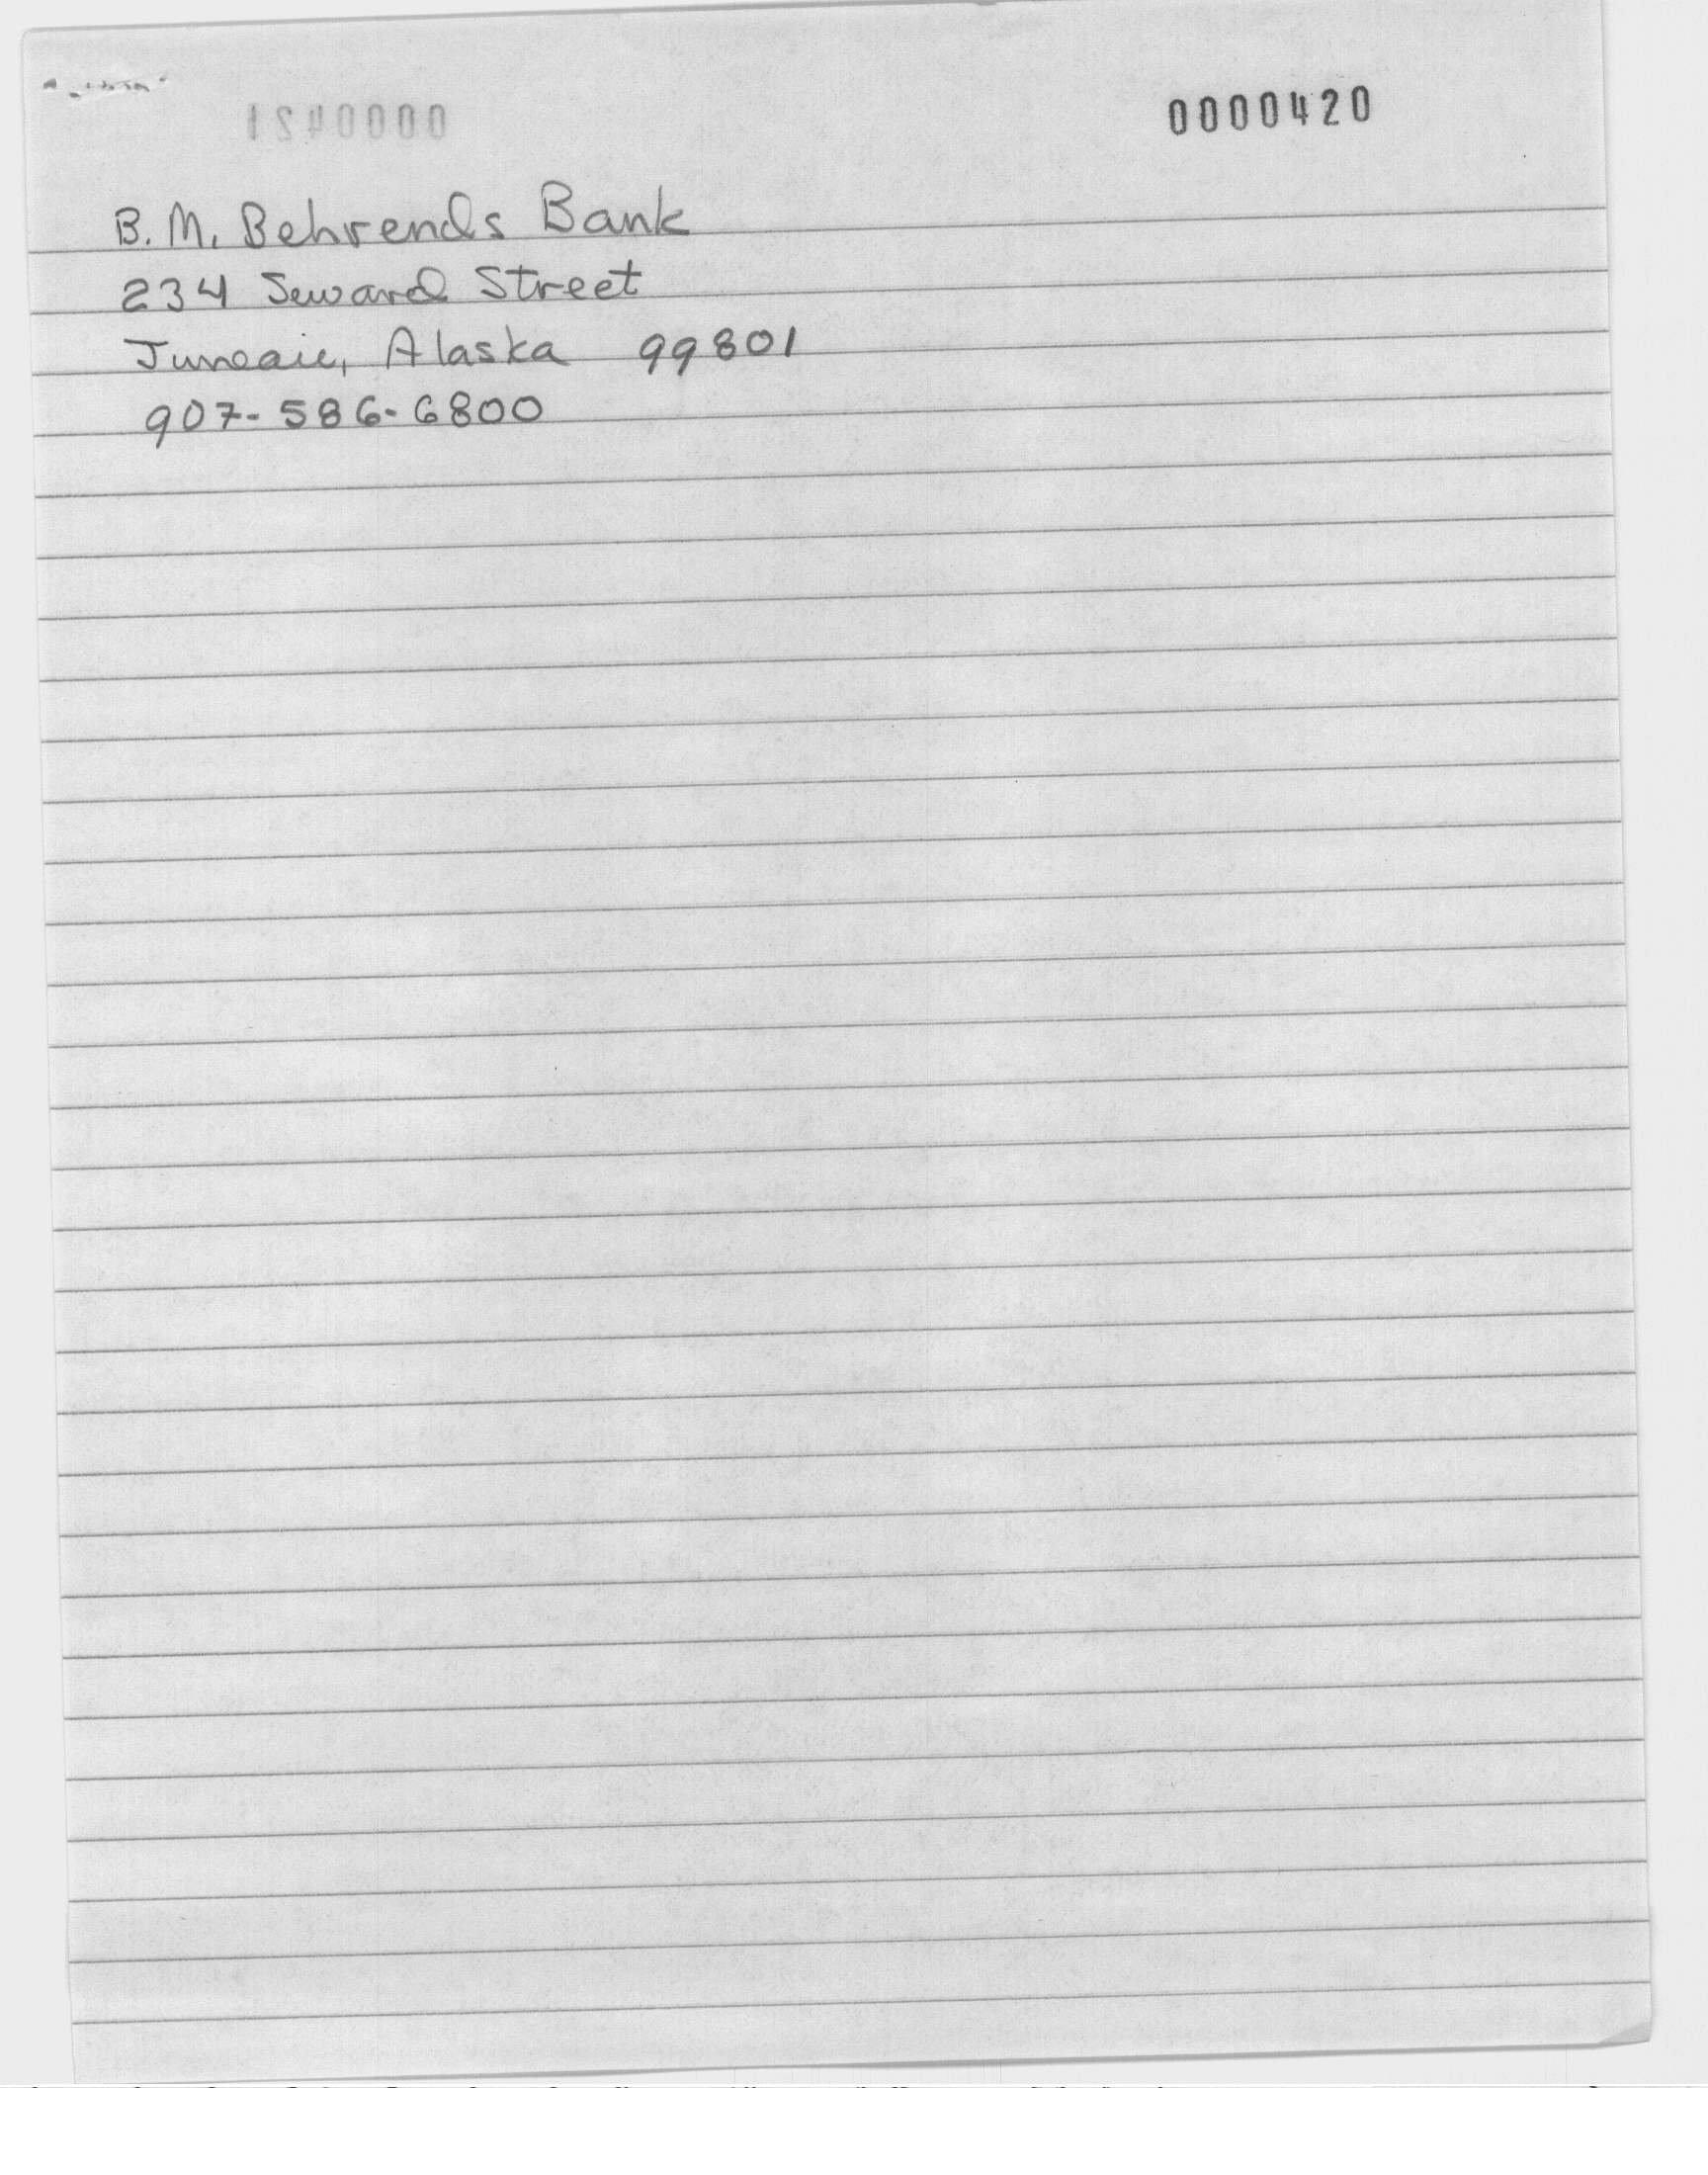 0000420
0000421
B. M. Behrends Bank
234 Seward Street
Juneau, Alaska 99801
907-586-6800